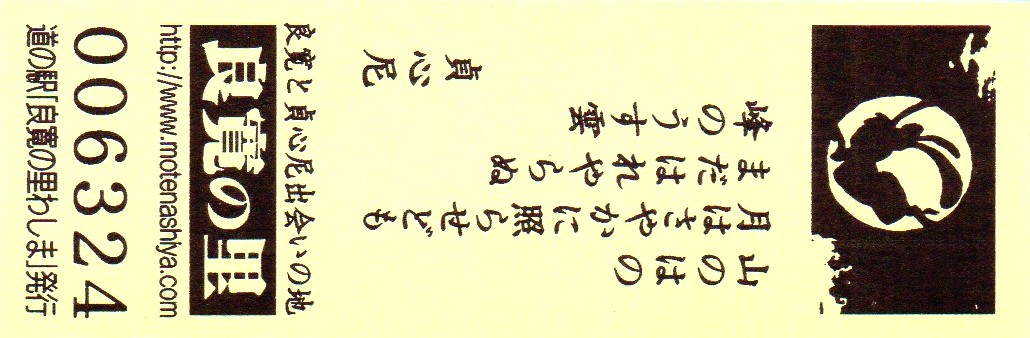 山のはの
月はさやかに照らせども
まだはれやらぬ
峰のうす雲
貞心尼
良寛と貞心尼出会いの地
良寛の里
http://www.motenashiya.com
006324
道の駅「良寛の里わしま」発行